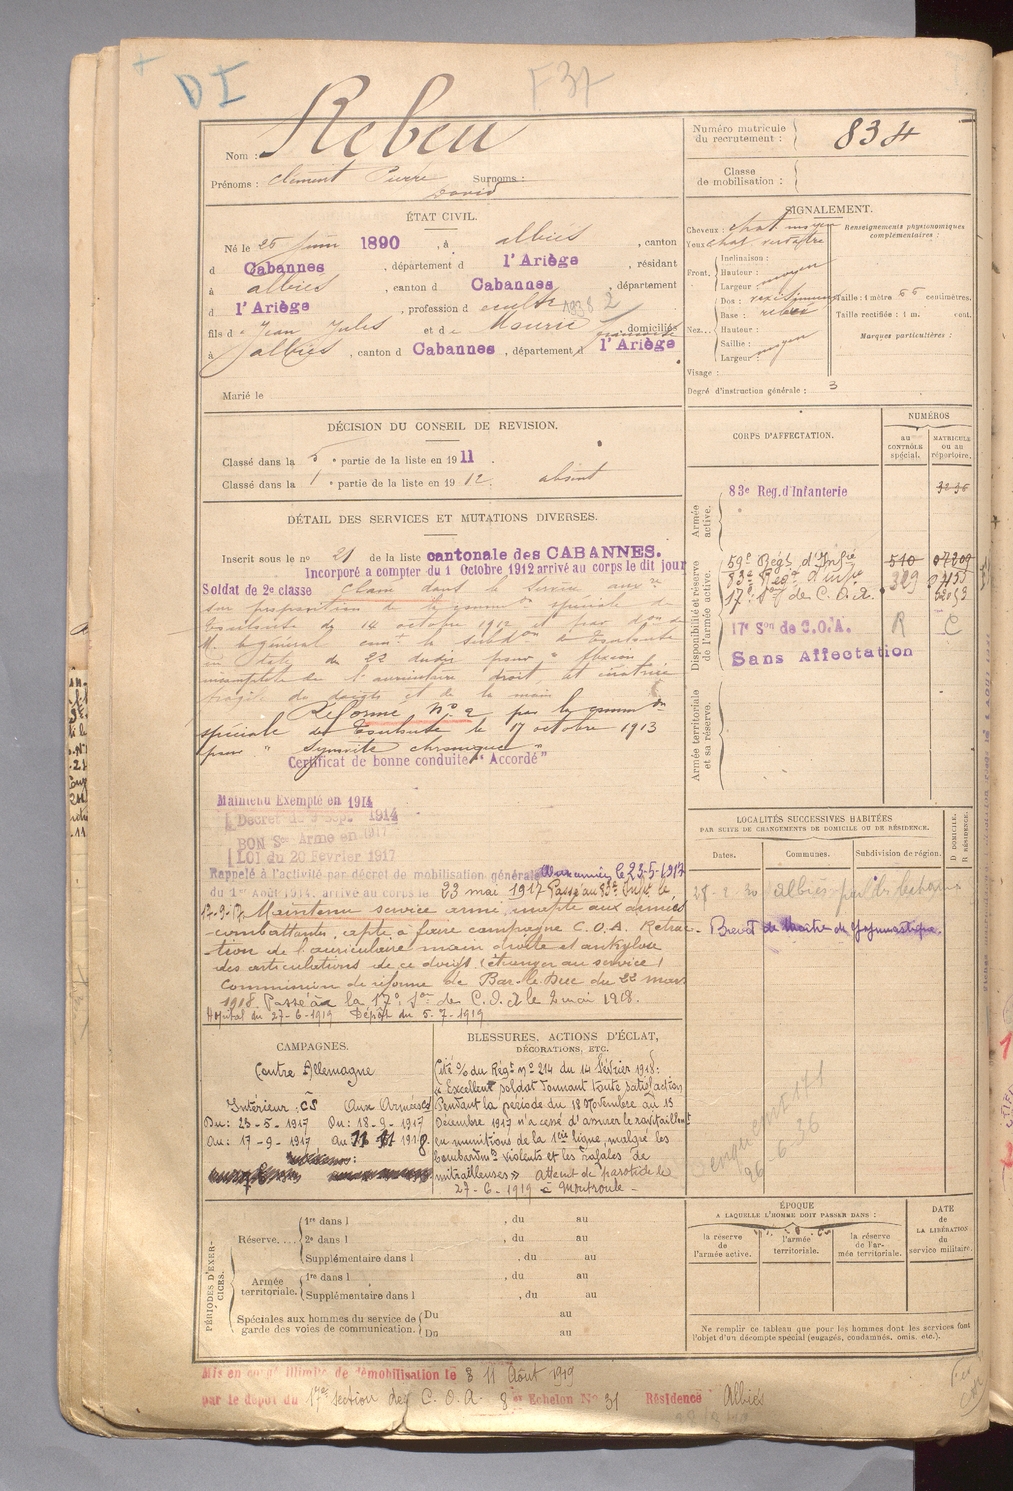 DI
F 37
Nom : Rebeu
Prénoms : Clément Pierre Surnoms :
David
Numéro matricule du recrutement : 834
Classe de mobilisation :
ÉTAT CIVIL.
Né le 25 juin 1890, à albiès, canton
d Cabannes, département d l'Ariège, résidant
à albiès, canton d Cabannes, département
d l'Ariège, profession d
fils de Jean Jules et de Maurie, domiciliés
à albiès, canton d Cabannes, département d l'Ariège
Marié le
SIGNALEMENT.
Cheveux : chat moyen
Yeux
Renseignements physionomiques complémentaires :
Front.
Inclinaison :
Hauteur :
Largeur : moyen
Nez...
Dos :
Base :
Hauteur :
Saillie :
Largeur : moyen
Taille : 1 mètre 55 centimètres.
Taille rectifiée : 1 m. cent.
Marques particulières :
Visage :
Degré d'instruction générale : 3
DÉCISION DU CONSEIL DE REVISION.
Classé dans la 5e partie de la liste en 1911.
Classé dans la 1e partie de la liste en 1912. absent
DÉTAIL DES SERVICES ET MUTATIONS DIVERSES.
Inscrit sous le no 21 de la liste cantonale des CABANNES.
Incorporé a compter du 1 Octobre 1912 arrivé au corps le dit jour
Soldat de 2e classe Classé dans le Service auxre
sur proposition de la common spéciale de
Toulouse du 14 octobre 1912 et par don de
M. le général comt la subdon de Toulouse
en date du 22 dudit pour " flexion
incomplète de l'auriculaire droit, et cicatrice
de doigts et de la main
Réformé No 2 par la common
spéciale de Toulouse le 17 octobre 1913
pour " Synovite chronique "
Certificat de bonne conduite "Accordé"
Maintenu Exempté en 1914
Décret du 9 Sept. 1914
BON Se Armé en 1917
LOI du 20 Février 1917
Rappelé à l'activité par décret de mobilisation générale
du 1er Août 1914, arrivé au corps le 23 mai 1917 Passé au 83e Infie le
17-9-17. Maintenu service armé, inapte aux armées
combattantes, apte à faire campagne C.O.A. Rétrac-
tion de l'auriculaire main droite et ankylose
des articulations de ce doigt (étranger au service)
Commission de réforme de Bar-le-Duc du 22 mars
1918. Passé à la 17e Son de C.O.A le 2 mai 1918.
Hôpital du 27-6-1919 Dépôt du 5.7-1919
CORPS D'AFFECTATION.
NUMÉROS
AU CONTRÔLE spécial.
MATRICULE OU AU répertoire.
Armée active.
83e Reg. d'Infanterie 3236
Disponibilité et réserve de l'armée active.
59e Régt d'Infie 510 07209
83e Régt d'Infie 329
17e Son de C.O.A.
17e Son de C.O.A. R C
Sans Affectation
Armée territoriale et sa réserve.
LOCALITÉS SUCCESSIVES HABITÉES
PAR SUITE DE CHANGEMENTS DE DOMICILE OU DE RÉSIDENCE.
Dates. Communes. Subdivision de région. D DOMICILE. R RÉSIDENCE.
albiès
Brevet de Maître de Gymnastique.
CAMPAGNES.
Contre Allemagne
Intérieur : CS Aux Armées CD
Du : 23-5-1917 Du : 18-9-1917
Au : 17-9-1917 Au 11 11 1918
BLESSURES, ACTIONS D'ÉCLAT,
DÉCORATIONS, ETC.
Cité O/ du Régt no 214 du 14 Février 1918 :
« Excellent soldat donnant toute satisfaction
Pendant la période du 18 Novembre au 15
Décembre 1917 n'a cessé d'assurer le ravitaillemt
en munitions de la 1ère ligne, malgré les
bombardmts violents et les rafales de
mitrailleuses » Atteint de parotide le
27-6-1919 à
26 6 36
PÉRIODES D'EXERCICES.
Réserve....
1re dans l , du au
2e dans l , du au
Supplémentaire dans l , du au
Armée territoriale.
1re dans l , du au
Supplémentaire dans l , du au
Spéciales aux hommes du service de garde des voies de communication.
Du au
Du au
ÉPOQUE
A LAQUELLE L'HOMME DOIT PASSER DANS :
la réserve de l'armée active.
l'armée territoriale.
la réserve de l'armée territoriale.
DATE de LA LIBÉRATION du service militaire.
Ne remplir ce tableau que pour les hommes dont les services font
l'objet d'un décompte spécial (engagés, condamnés, omis, etc.).
Mis en congé illimité de démobilisation le 11 Août 1919
par le dépôt du 17e section de C.O.A 8e Echelon No 31 Résidence Albiès